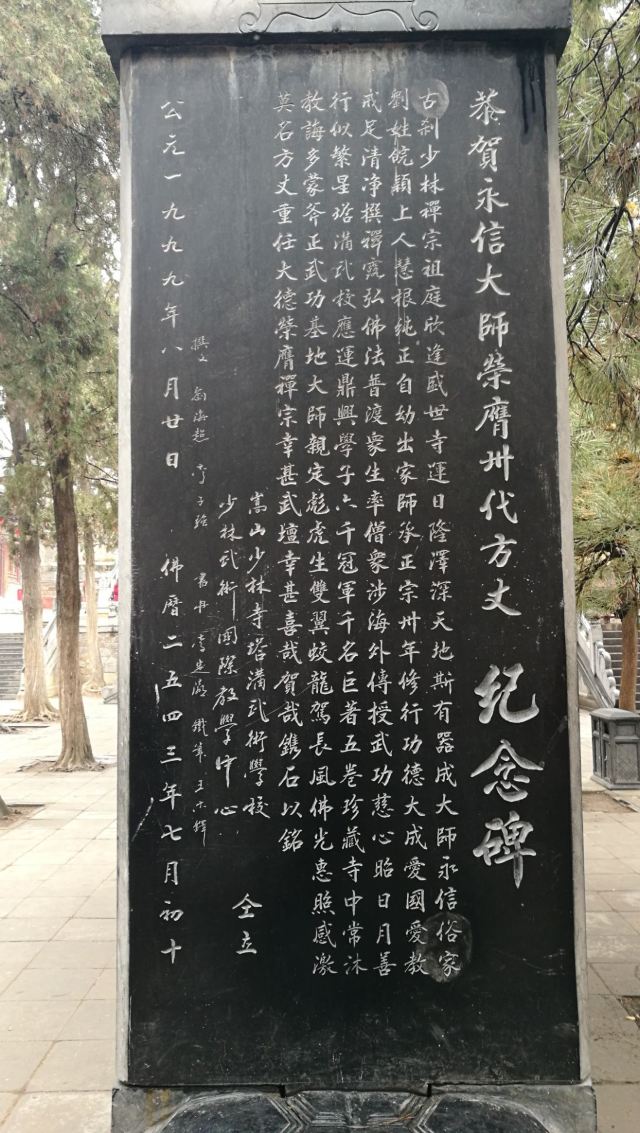 恭賀永信大師榮膺卅代方丈 纪念碑
古刹少林禪宗祖庭欣逢盛世寺運日隆澤深天地斯有器成大師永信俗家
劉姓皖穎上人慧根純正自幼出家師承正宗卅年修行功德大成愛國愛教
戒足清净撰禪露弘佛法普渡衆生率僧衆涉海外傳授武功慈心昭日月善
行似繁星塔溝武校應運鼎興學子六千冠軍千名巨著五卷珍藏寺中常沐
教誨多蒙斧正武功基地大師親定彪虎生雙翼蛟龍駕長風佛光惠照感激
莫名方丈重任大德榮膺禪宗幸甚武壇幸甚喜哉賀哉鐫石以銘
嵩山少林寺塔溝武術學校
少林武術国際教學中心 仝立
撰文 劉海超 書丹 鐵筆
公元一九九九年八月廿日 佛曆二五四三年七月初十